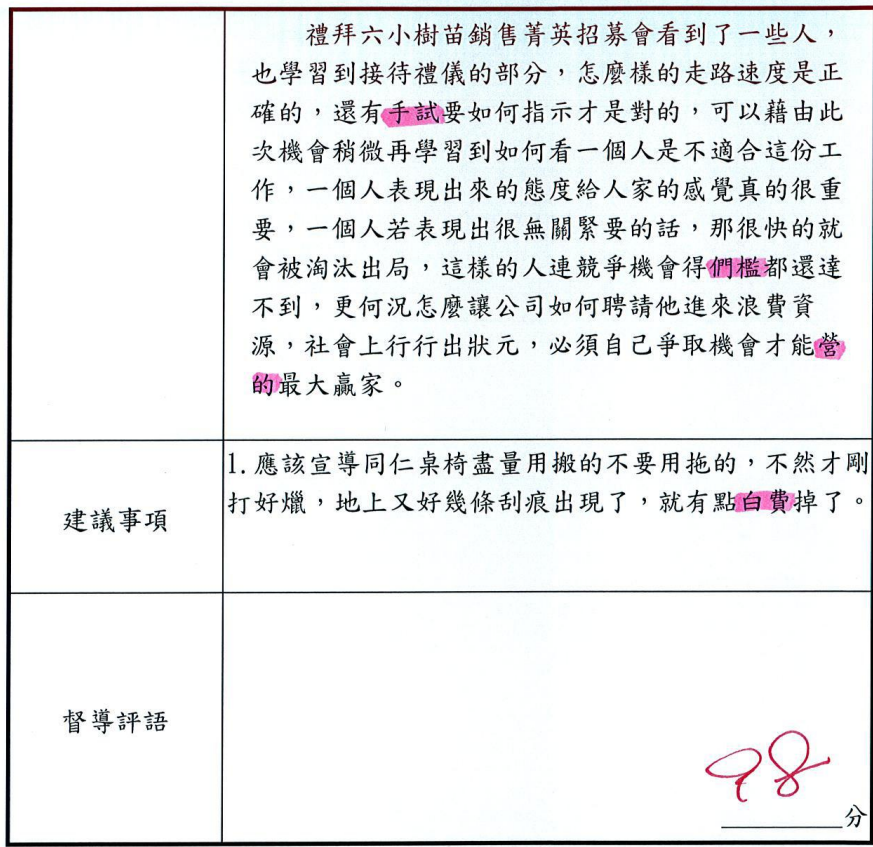 禮拜六小樹苗銷售菁英招募會看到了一些人，
也學習到接待禮儀的部分，怎麼樣的走路速度是正
確的，還有手試要如何指示才是對的，可以藉由此
次機會稍微再學習到如何看一個人是不適合這份工
作，一個人表現出來的態度給人家的感覺真的很重
要，一個人若表現出很無關緊要的話，那很快的就
會被淘汰出局，這樣的人連競爭機會得們檻都還達
不到，更何況怎麼讓公司如何聘請他進來浪費資
源，社會上行行出狀元，必須自己爭取機會才能營
的最大贏家。
建議事項
1. 應該宣導同仁桌椅盡量用搬的不要用拖的，不然才剛
打好爉，地上又好幾條刮痕出現了，就有點白費掉了。
督導評語
98
分